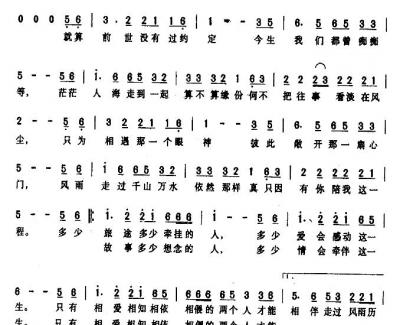 0 0 0 5 6 | 3. 2 2 1 1 6 | 1 - - 3 5 | 6. 5 6 5 3 3 |
就算 前世没有过约 定 今生 我们都曾痴痴
5 - - 5 6 | i. 6 6 5 3 2 | 3 5 3 3 3 2 1 6 3 | 2 2 2 3 2 2 2 2 1 |
等, 茫茫 人海走到一起 算不算缘份何不 把往事看淡在风
2 - - 5 6 | 3 2 2 1 1 6 | 1 - - 3 5 | 6. 5 6 5 3 3 |
尘, 只为 相遇那一个眼 神 彼此 敞开那一扇心
5 - - 5 6 | i. 6 6 5 3 2 | 3 5 3 3 2 1 6 3 | 2 2 2 2 2 2 1 |
门, 风雨 走过千山万水 依然那样真只因 有你陪我这一
5 - - 5 6 ‖: i. 2 2 i 6 6 6 | i - - 5 6 | i. 2 2 i 6 5 |
程。 多少 旅途多少牵挂的 人, 多少 爱会感动这一
故事多少想念的 人, 多少 情会牵伴这一
6 - - 5 6 | i. 2 2 i 6 5 | 6 6 6 6 5 3 3 | 5 3 5 3 2 1 2 |
生。 只有 相爱相知相依 相偎的两个人才能 相伴走过风雨历
生。 只有 相爱相知相依 相偎的两个人才能